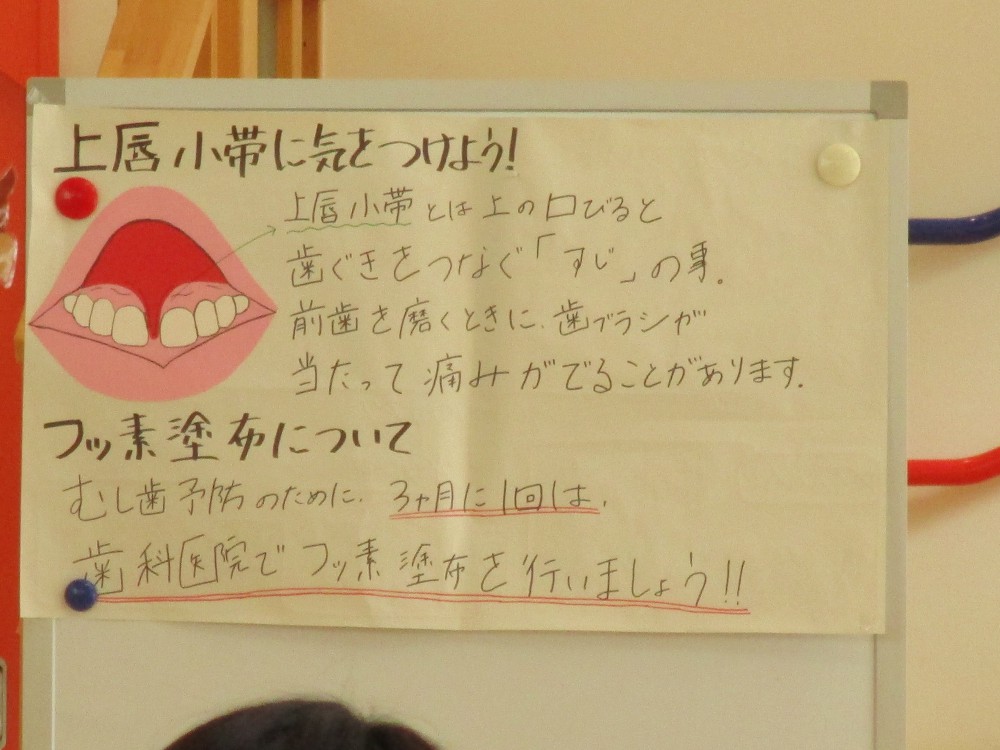 上唇小帯に気をつけよう!
上唇小帯とは上の口びると
歯ぐきをつなぐ「すじ」の事。
前歯を磨くときに、歯ブラシが
当たって痛みがでることがあります。
フッ素塗布について
むし歯予防のために、3ヶ月に1回は、
歯科医院でフッ素塗布を行いましょう!!